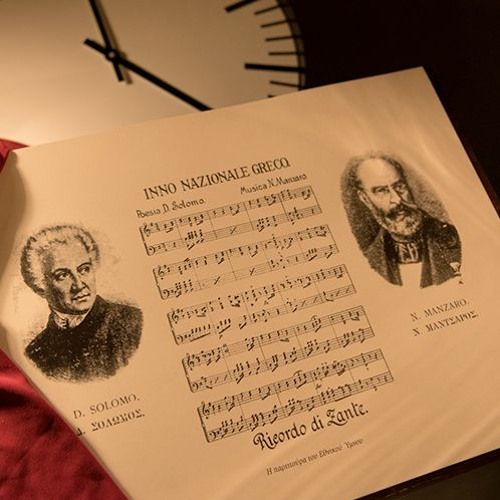 INNO NAZIONALE GRECO.
Poesia D. Solomo. Musica N. Manzaro
D. SOLOMO.
Δ. ΣΟΛΩΜΟΣ.
N. MANZARO.
Ν. ΜΑΝΤΣΑΡΟΣ.
Ricordo di Zante.
Η παρτιτούρα του Εθνικού Ύμνου